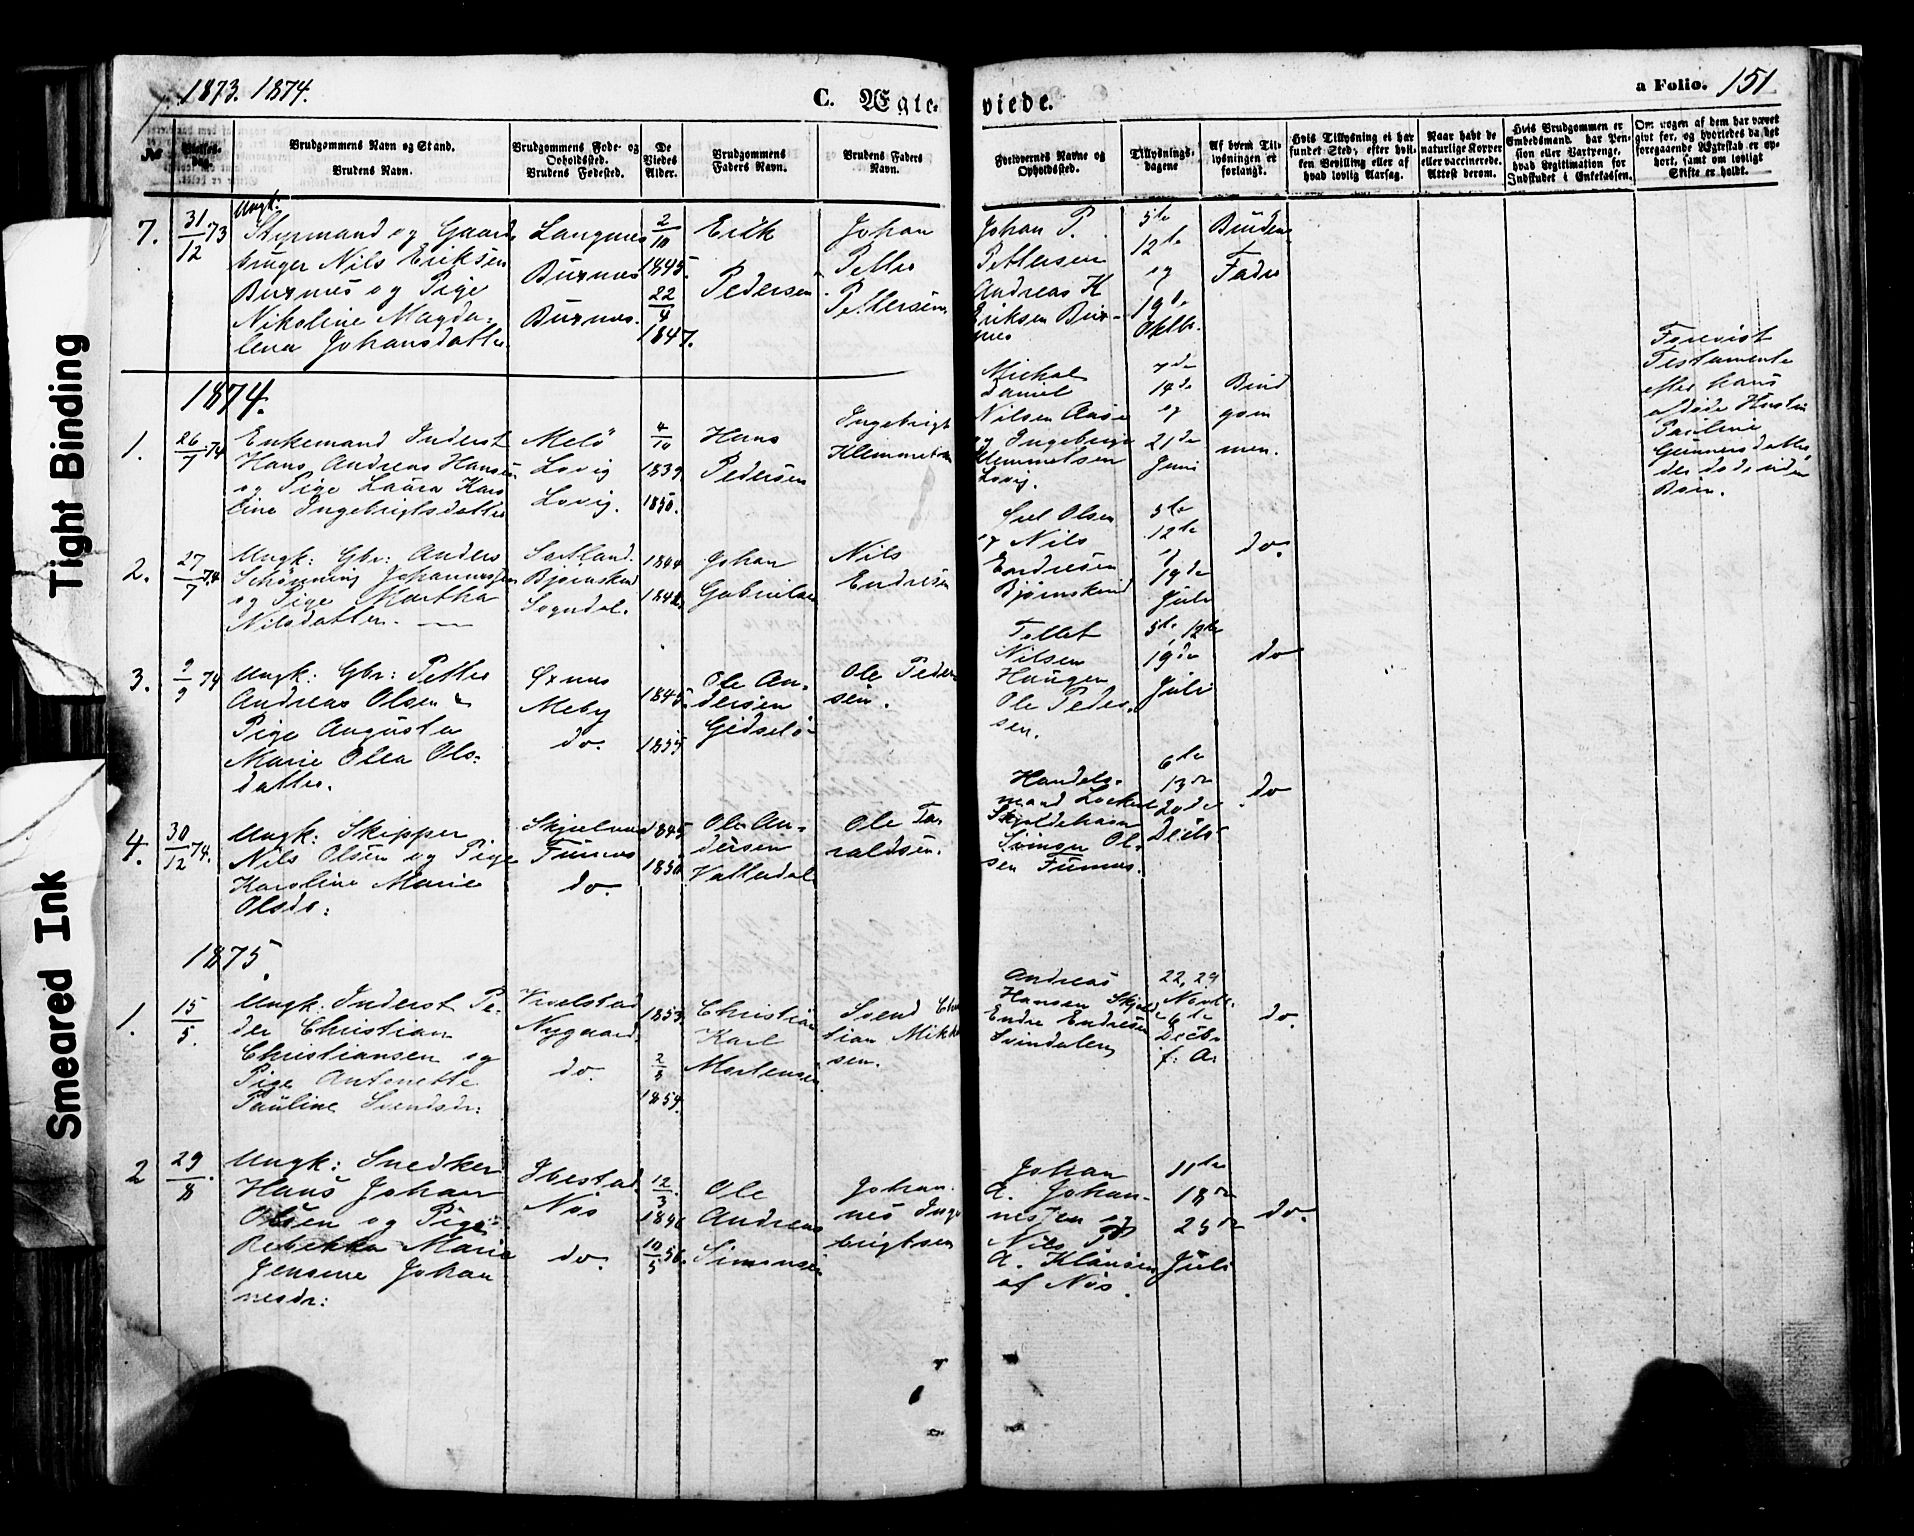 1873. 1874.
C. Ægte- viede.
a Folio. 151
No
Vielses-dag.
Brudgommens Navn og Stand.
Brudens Navn.
Brudgommens Føde- og Opholdssted.
Brudens Fødested.
De Viedes Alder.
Brudgommens Faders Navn.
Brudens Faders Navn.
Forlovernes Navne og Opholdssted.
Tillysnings-dagene
Af hvem Tillysningen er forlangt.
Hvis Tillysning ei har fundet Sted, efter hvilken Bevilling eller af hvad lovlig Aarsag.
Naar havt de naturlige Kopper eller vaccinerede. Attest derom.
Hvis Brudgommen er Embedsmand, har Pension eller Vartpenge, hvad Legitimation for Indskudet i Enkekassen.
Om nogen af dem har været givt før, og hvorledes da det foregaaende Ægteskab er ophørt, samt om lovligt Skifte er holdt.
7.
31/12 73
Ungk:
Styrmand og Gaard-
bruger Nils Eriksen
Buxnes og Pige
Nikoline Magda-
lena Johansdatter.
Langnes
Buxnes
Buxnes.
2/10
1845.
22/4
1847.
Erik
Pedersen
Johan
Petter
Pettersen
Johan P.
Pettersen
Andreas H
Eriksen Bux-
nes
5te
12te
og
19de
Oktbr.
Brudens
Fader
1874.
1.
26/7 74
Enkemand Inderst
Hans Andreas Hansen
og Pige Laura Karo
line Ingebrigtsdatter
Melö
Lovig
Lovig.
4/10
1839
1850.
Hans
Pedersen
Ingebrigt
Klemmetsen
Michal
Daniel
Nilsen Aase
og Ingebrigt
Klemmetsen
Lovig.
7de
14de
og
21de
Juni
Brud
gom
men.
Forevist
Testamente
efter hans
afdøde Hustru
Pauline
Gunnersdatter,
der døde uden
Børn.
2.
27/7 74
Ungk: Gbr: Anders
Schönning Johannessen
og Pige Martha
Nilsdatter.
Sortland.
Bjørnskind
Sogndal.
1844
1848.
Johan
Gabrielsen
Nils
Endresen
Olsen
og Nils
Endresen
Bjørnskind
5te
12te
og
19de
Juli
do.
3.
9/9 74
Ungk: Gbr: Petter
Andreas Olsen &
Pige Augusta
Marie Olea Ols-
datter.
Øxnes
Meby
do.
1845.
1855
Ole An-
dersen
Gidselö-
Ole Peder
sen.
Tellef
Nilsen
Haugen
Ole Peder-
sen.
5te, 12te
19de
Juli
do
4.
30/12 74.
Ungk: Skipper
Nils Olsen og Pige
Karoline Marie
Olsdr:
Skjelnes
Finnes
do.
1845
1850
Ole An-
dersen
Vatterdal
Ole To
raldsen.
Handels-
mand Lockert
Skjoldehavn
Ol-
sen Finnes.
6te
13de
20de
Decbr
do
1875.
1.
15/5.
Ungk. Inderst Pe-
der Christian
Christiansen og
Pige Antonette
Pauline Svendsdr:
Kvalstad
Nygaard.
do.
1853.
2/8
1854.
Christian
Karl
Mortensen
Svend Chris
tian Mikkel
sen.
Andreas
Hansen
Endre Endresen
Svindalen
22, 29
Novbr.
6te
Decbr
f: A.
do.
2
29/8.
Ungk: Snedker
Hans Johan
Olsen og Pige
Rebekka Maria
Jensine Johan
nesdr:
Ibestad
Nös
do.
12/3.
1846
10/5 56.
Ole
Andreas
Simonsen
Johan-
nes Inge
brigtsen
Johan
A. Johan-
nessen og
Nils
A. Klausen
af Nös.
11te
18de
25de
Juli
do.
Tight Binding
Smeared Ink